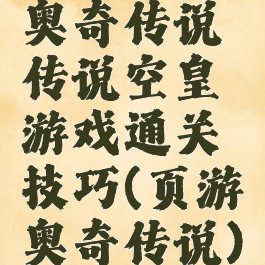 奥奇传说
传说空皇
游戏通关
技巧(页游
奥奇传说)